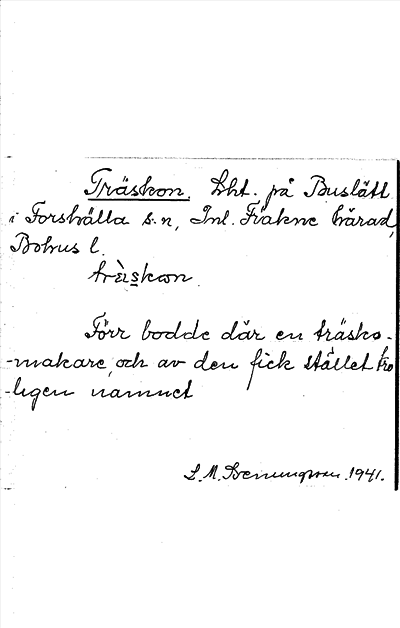 Träskon. Lht. på Buslätt
i Forshälla s:n, Inl. Fräkne härad,
Bohus l.
trä̀skon.
Förr bodde där en träsko-
-makare, och av den fick stället tro
-ligen namnet
L. M. Svenungsson. 1941.